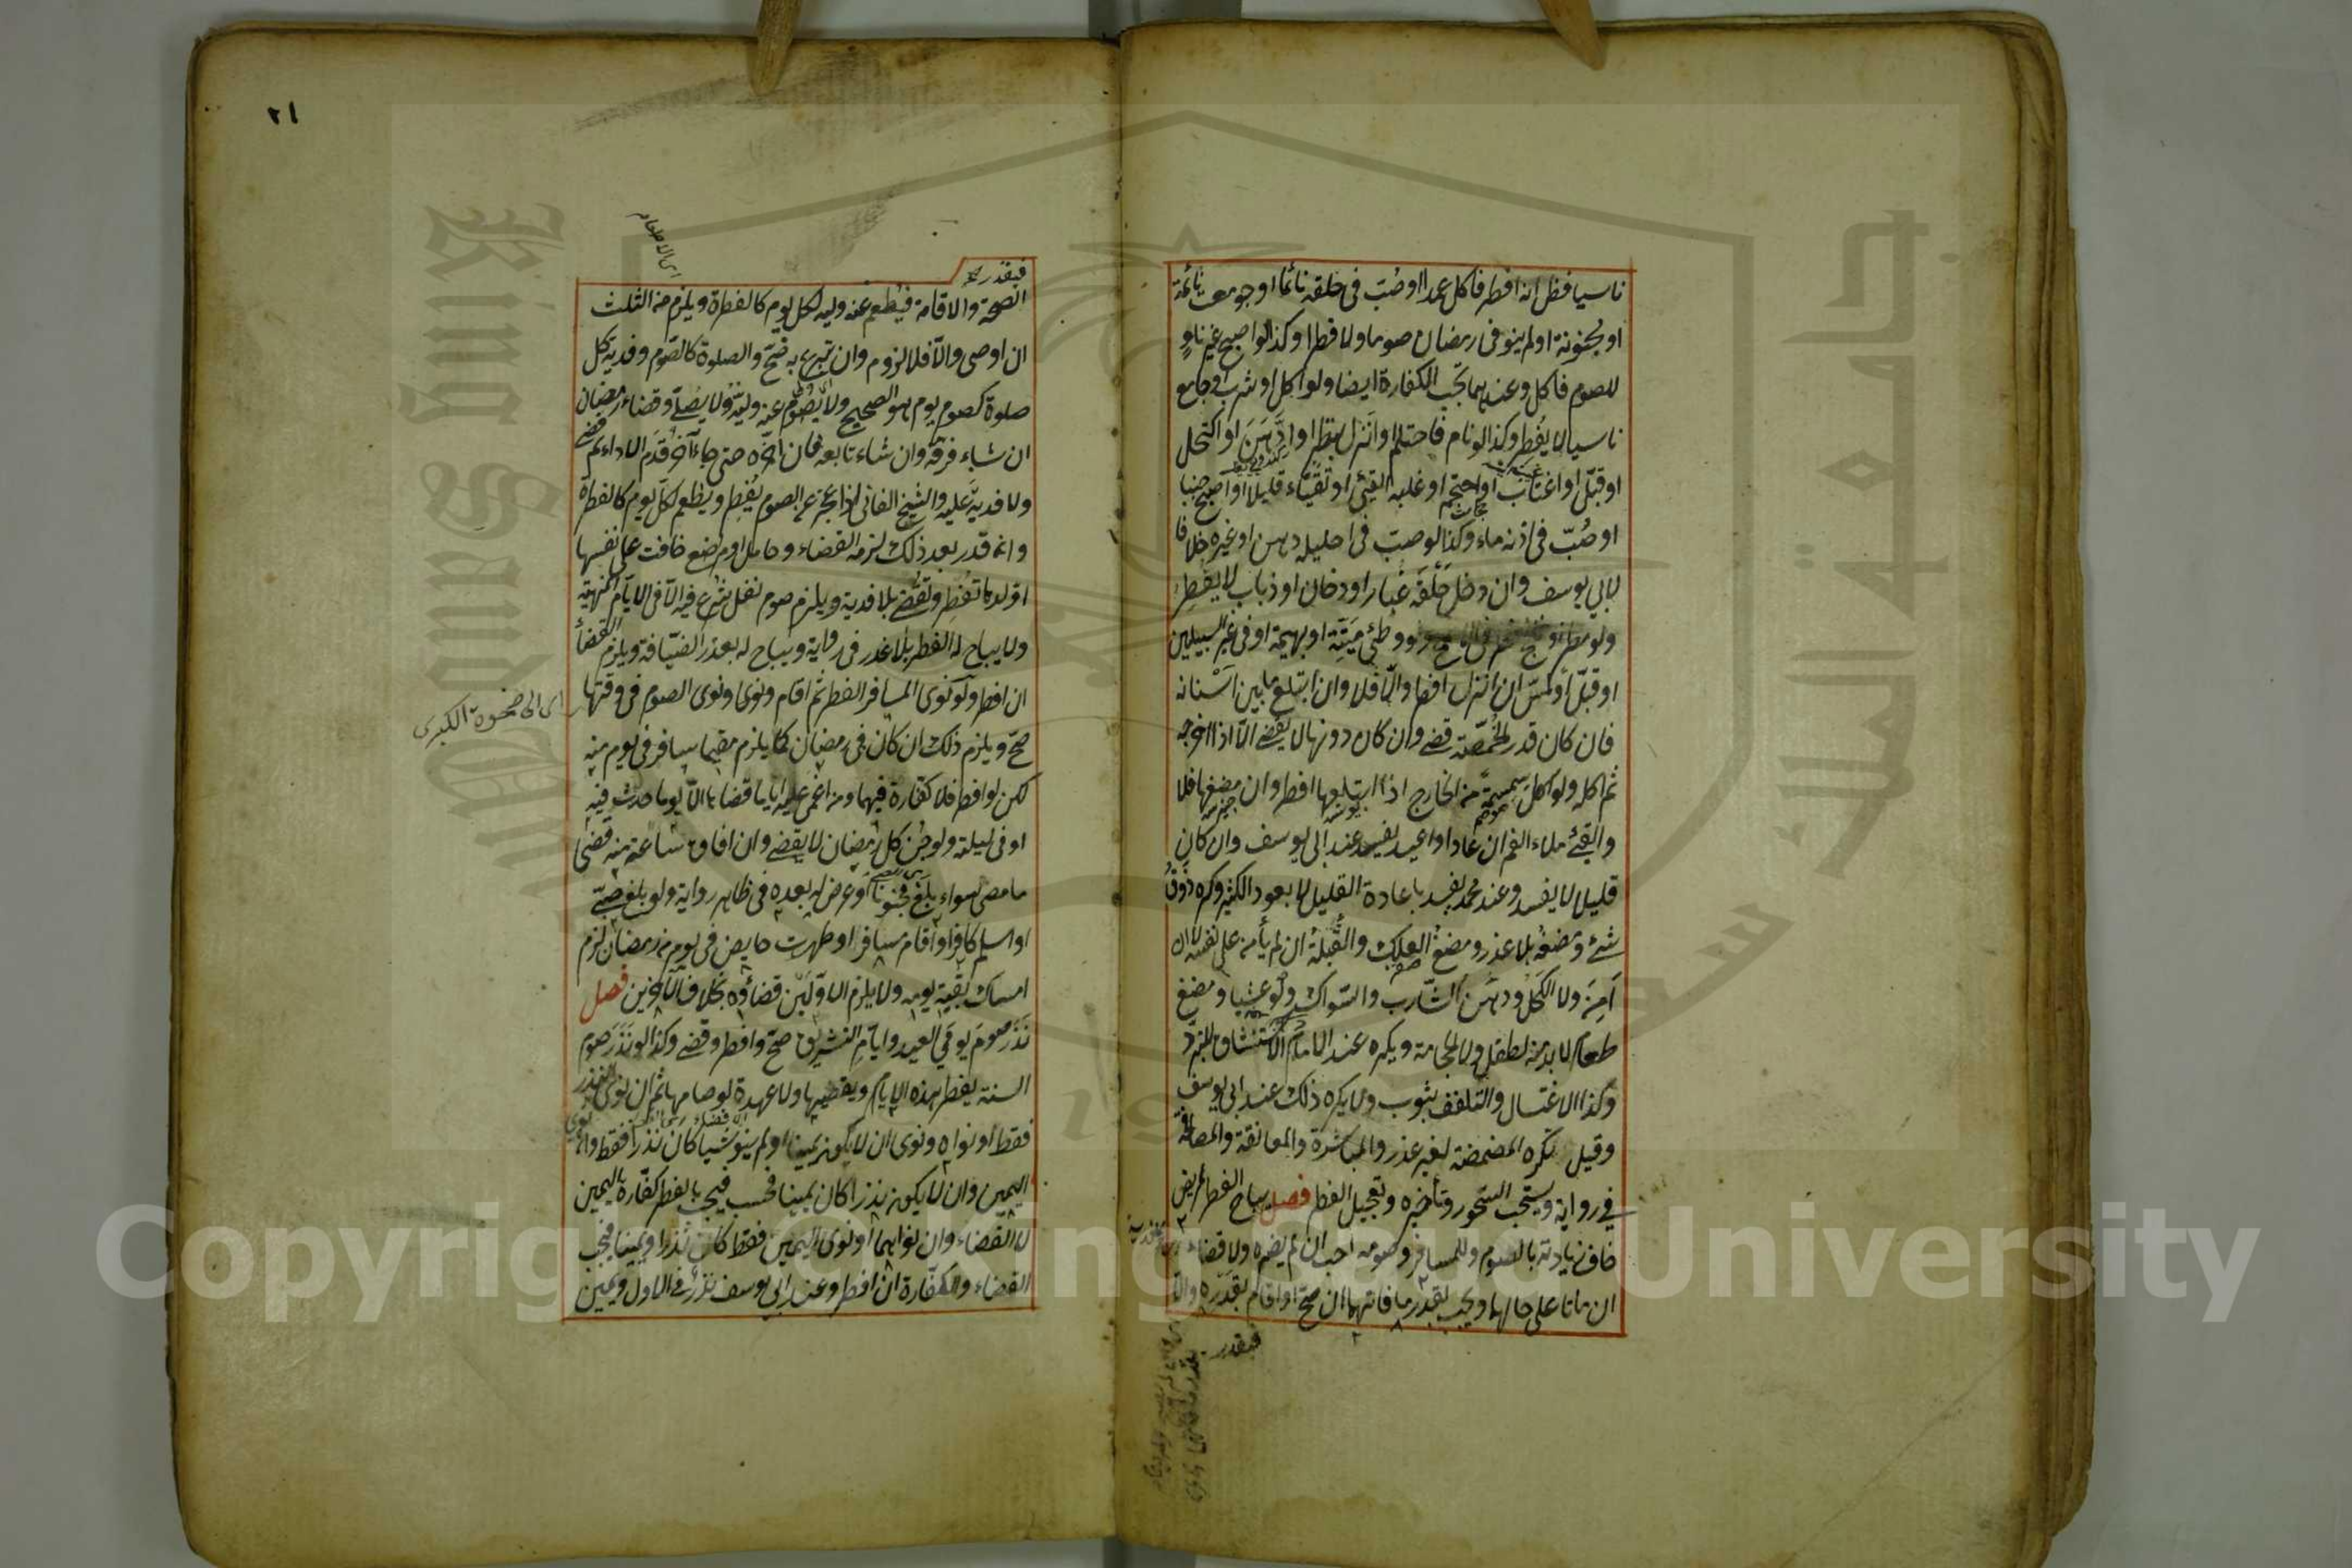 ناسيا فظن انه افطر فاكل عمدا او صُبّ فى حلقه نائما او جومعت نائمة
او مجنونة او لم ينو فى رمضان صوما ولا فطرا وكذا لو اصبح غير ناوٍ
للصوم فاكل وعندهما تجب الكفارة ايضا ولو اكل او شرب او جامع
ناسيا لا يفطر وكذا لو نام فاحتلم او انزل بنظر او ادَّهَنَ او اكتحل
او قبّل او اغتاب او احتجم او غلبه القيئ او تقيّاء قليلا او اصبح جنبا
او صُبّ فى اذنه ماء وكذا لو صب فى احليله دهن او غيره خلافا
لابي يوسف وان دخل حَلْقَه غبار او دخان او ذباب لا يفطر
ولو وطئ ميتة او بهيمة او فى غير السبيلين
او قبّل او لمس ان انزل افطر والّا فلا وان ابتلع ما بين اسنانه
فان كان قدر الحُمّصة قضى وان كان دونها لا يقضى الّا اذا اخرجه
ثم اكله ولو اكل سِمسِمة من الخارج اذا ابتلعها افطر وان مضغها فلا
والقيئ ملاء الفم ان عاد او اعيد يفسد عند ابى يوسف وان كان
قليلا لا يفسد وعند محمد يفسد باعادة القليل لا بعود الكثير وكره ذَوْقُ
شئ ومضغه بلا عذر ومضغ العلك والقُبلة ان لم يأمن على نفسه لا ان
اَمِنَ ولا الكحل ودهن الشارب والسّواك ولو عشيا ومضغ
طعام لا بد منه لطفل ولا الحجامة ويكره عند الامام الاستنشاق للتبرّد
وكذا الاغتسال والتلفف بثوب ولا يكره ذلك عند ابى يوسف
وقيل تكره المضمضة لغير عذر والمباشرة والمعانقة والمصافحة
فى رواية ويستحب السّحور وتأخيره وتعجيل الفطر فصل يباح الفطر لمريض
خاف زيادته بالصوم وللمسافر وصومه احب ان لم يضره ولا قضاء
ان ماتا على حالهما ويجب بقدر ما فاتهما ان صحّ او اقام بقدره والّا
فبقدر
٢١
فبقدر
الصحة والاقامة فيُطعم عنه وليه لكل يوم كالفطرة ويلزم من الثلث
ان اوصى والّا فلا لزوم وان تبرع به صحّ والصلوة كالصّوم وفدية كل
صلوة كصوم يوم هو الصحيح ولا يصوم عنه وليّه ولا يصلّى وقضاء رمضان
ان شاء فرقه وان شاء تابعه فان اخّره حتى جاء آخر قدّم الاداء ثم قضى
ولا فدية عليه والشيخ الفانى اذا عجز عن الصوم يُفطِر ويطعم لكل يوم كالفطرة
وان قدر بعد ذلك لزمه القضاء وحامل او مرضع خافت على نفسها
او ولدها تفطر وتقضى بلا فدية ويلزم صوم نفل شرع فيه الّا فى الايّام المنهية
ولا يباح له الفطر بلا عذر فى رواية ويباح له بعذر الضيّافة ويلزم القضاء
ان افطر ولو نوى المسافر الفطر ثم اقام ونوى الصوم فى وقتها
اى الى ضحوة الكبرى
صحّ ويلزم ذلك ان كان فى رمضان كما يلزم مقيما سافر فى يوم منه
لكن لو افطر فلا كفّارة فيهما ومن اغمى عليه اياما قضاها الّا يوما حدث فيه
او فى ليلته ولو جُنّ كل رمضان لا يقضى وان افاق ساعة منه قضى
ما مضى سواء بلغ مجنونا او عرض له بعده فى ظاهر رواية ولو بلغ صبىّ
او اسلم كافر او اقام مسافر او طهرت حايض فى يوم من رمضان لزم
امساك بقية يومه ولا يلزم الاوّلين قضاؤه بخلاف الآخرين فصل
نَذَر صوم يومَي العيد وايام التشريق صحّ وافطر وقضى وكذا لو نَذَر صوم
السنة يفطر هذه الايام ويقضيها ولا عهدة لو صامها ثم ان نوى النذر
فقط او نواه ونوى ان لا يكون يمينا او لم ينو شيأ كان نذرا فقط وان نوى
اليمين وان لا يكون نذرا كان يمينا فحسب فيجب بالفطر كفّارة اليمين
لا القضاء وان نواهما او نوى اليمين فقط كان نذرا ويمينا فيجب
القضاء والكفّارة ان افطر وعند ابى يوسف نذر فى الاول ويمين
جامعة الملك سعود
King Saud University
1957
Copyright © King Saud University